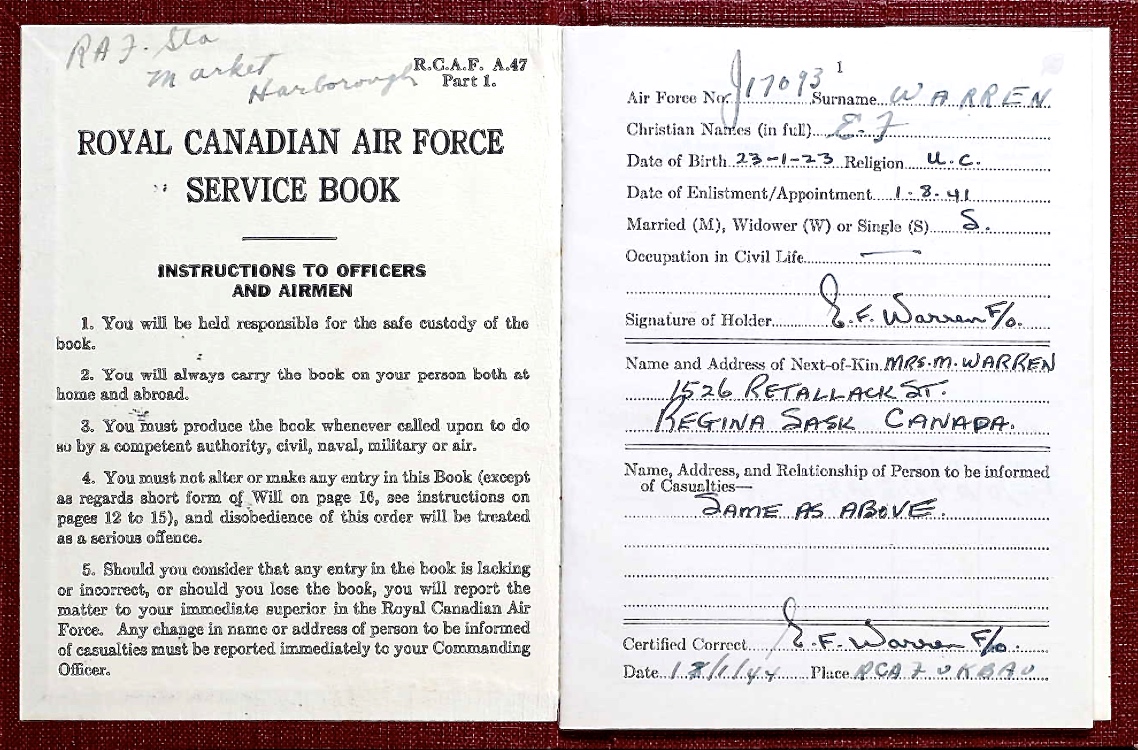 RAF. Sta
Market
Harborough
R.C.A.F. A.47
Part 1.
ROYAL CANADIAN AIR FORCE
SERVICE BOOK
INSTRUCTIONS TO OFFICERS
AND AIRMEN
1. You will be held responsible for the safe custody of the
book.
2. You will always carry the book on your person both at
home and abroad.
3. You must produce the book whenever called upon to do
so by a competent authority, civil, naval, military or air.
4. You must not alter or make any entry in this Book (except
as regards short form of Will on page 16, see instructions on
pages 12 to 15), and disobedience of this order will be treated
as a serious offence.
5. Should you consider that any entry in the book is lacking
or incorrect, or should you lose the book, you will report the
matter to your immediate superior in the Royal Canadian Air
Force. Any change in name or address of person to be informed
of casualties must be reported immediately to your Commanding
Officer.
1
Air Force No. J17093 Surname WARREN
Christian Names (in full) E.F
Date of Birth 23-1-23 Religion U.C.
Date of Enlistment/Appointment 1-8-41
Married (M), Widower (W) or Single (S) S.
Occupation in Civil Life —
Signature of Holder E.F. Warren F/o.
Name and Address of Next-of-Kin MRS. M. WARREN
1526 RETALLACK ST.
REGINA SASK CANADA.
Name, Address, and Relationship of Person to be informed
of Casualties—
SAME AS ABOVE.
Certified Correct E.F. Warren F/o.
Date 18/1/44 Place RCAF UK BAU